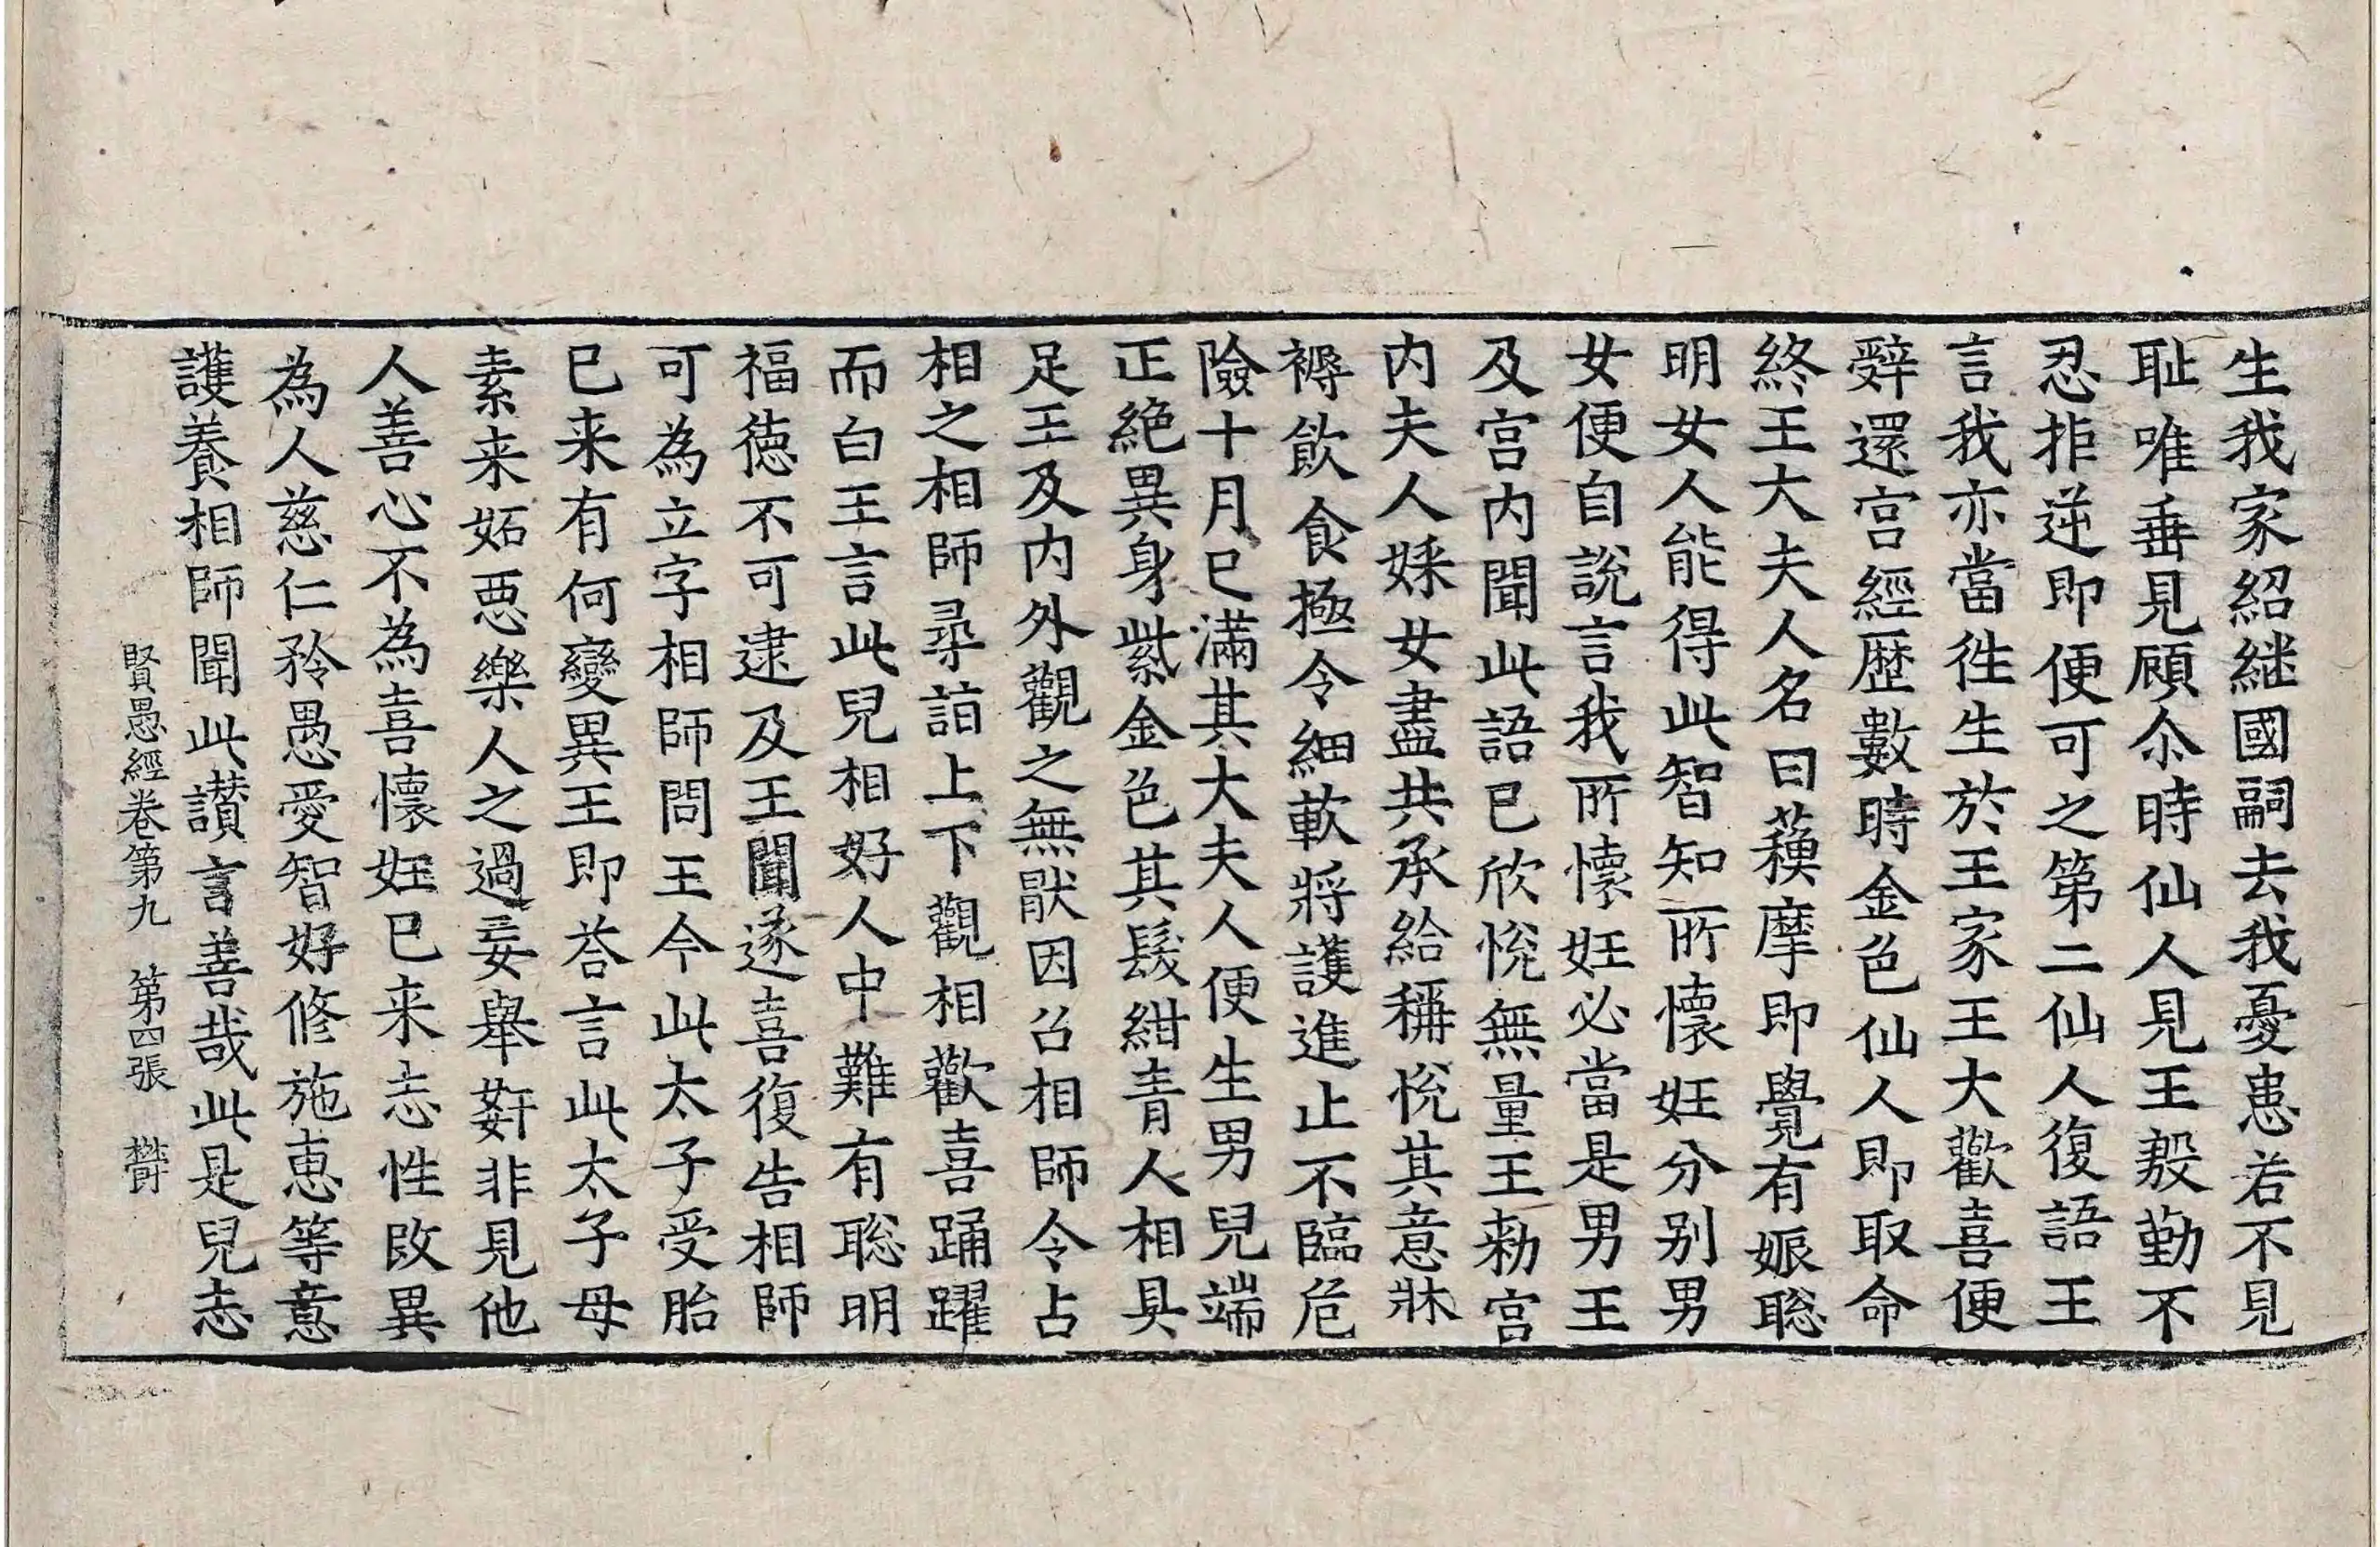 生我家紹継國嗣去我憂患若不見
耻唯垂見顧尒時仙人見王慇懃不
忍拒逆即便可之第二仙人復語王
言我亦當徃生於王家王大歡喜便
辤還宫經歴數時金色仙人即取命
終王大夫人名曰蘓摩即覺有娠聡
明女人能得此智知所懷妊分別男
女便自說言我所懷妊必當是男王
及宫内聞此語已欣悅無量王勑宫
内夫人婇女盡共承給稱悅其意牀
褥飲食極令細軟將護進止不臨危
險十月已滿其大夫人便生男兒端
正絶異身紫金色其髮紺青人相具
足王及内外觀之無猒因召相師令占
相之相師尋詣上下觀相歡喜踊躍
而白王言此兒相好人中難有聡明
福徳不可逮及王聞遂喜復告相師
可為立字相師問王今此太子受胎
已来有何變異王即荅言此太子母
素来妬惡樂人之過妄舉姧非見他
人善心不為喜懷妊已来志性改異
為人慈仁矜愚愛智好修施恵等意
護養相師聞此讃言善哉此是兒志
賢愚經卷第九　第四張　欝